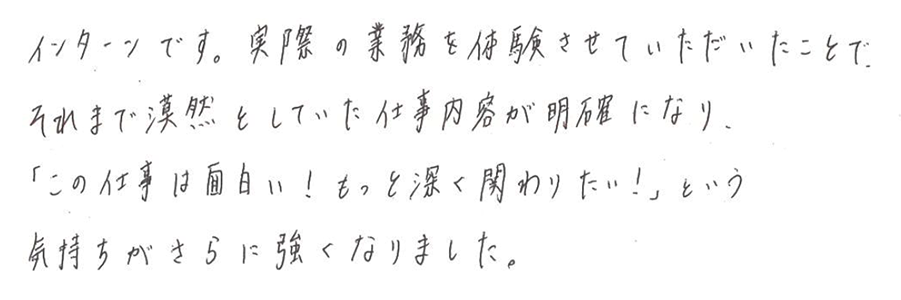 インターンです。実際の業務を体験させていただいたことで、
それまで漠然としていた仕事内容が明確になり、
「この仕事は面白い！もっと深く関わりたい！」という
気持ちがさらに強くなりました。